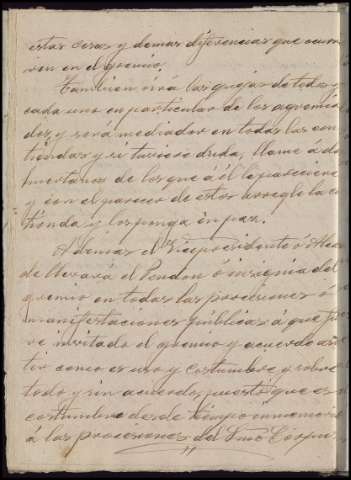 estas cosas y demas diferencias que ocurr
iren en el gremio.
Tambien oirá las quejas de todos y
cada uno en particular de los agremia
dos, y será mediador en todas las con
tiendas y si tuviese duda, llame á do
s de los que á él le pareciere
y con el parecer de estos arregle la co
tienda y los ponga en paz.
Ademas el Vicepresidente ó Alcal
de llevará el Pendon ó insignia del
gremio en todas las procesiones ó
manifestaciones públicas á que fue
re invitado el gremio y acuerde asis
tir como es uso y costumbre y sobre
todo y sin acuerdo, puesto que es
costumbre desde tiempo inmemorial
á las procesiones del Smo Corpus